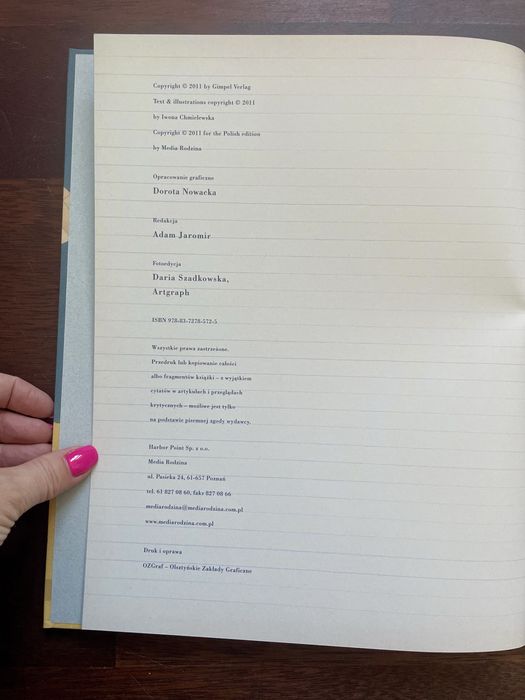 Copyright © 2011 by Gimpel Verlag
Text & illustrations copyright © 2011
by Iwona Chmielewska
Copyright © 2011 for the Polish edition
by Media Rodzina
Opracowanie graficzne
Dorota Nowacka
Redakcja
Adam Jaromir
Fotoedycja
Daria Szadkowska,
Artgraph
ISBN 978-83-7278-572-5
Wszystkie prawa zastrzeżone.
Przedruk lub kopiowanie całości
albo fragmentów książki – z wyjątkiem
cytatów w artykułach i przeglądach
krytycznych – możliwe jest tylko
na podstawie pisemnej zgody wydawcy.
Harbor Point Sp. z o.o.
Media Rodzina
ul. Pasieka 24, 61-657 Poznań
tel. 61 827 08 60, faks 827 08 66
mediarodzina@mediarodzina.com.pl
www.mediarodzina.com.pl
Druk i oprawa
OZGraf – Olsztyńskie Zakłady Graficzne